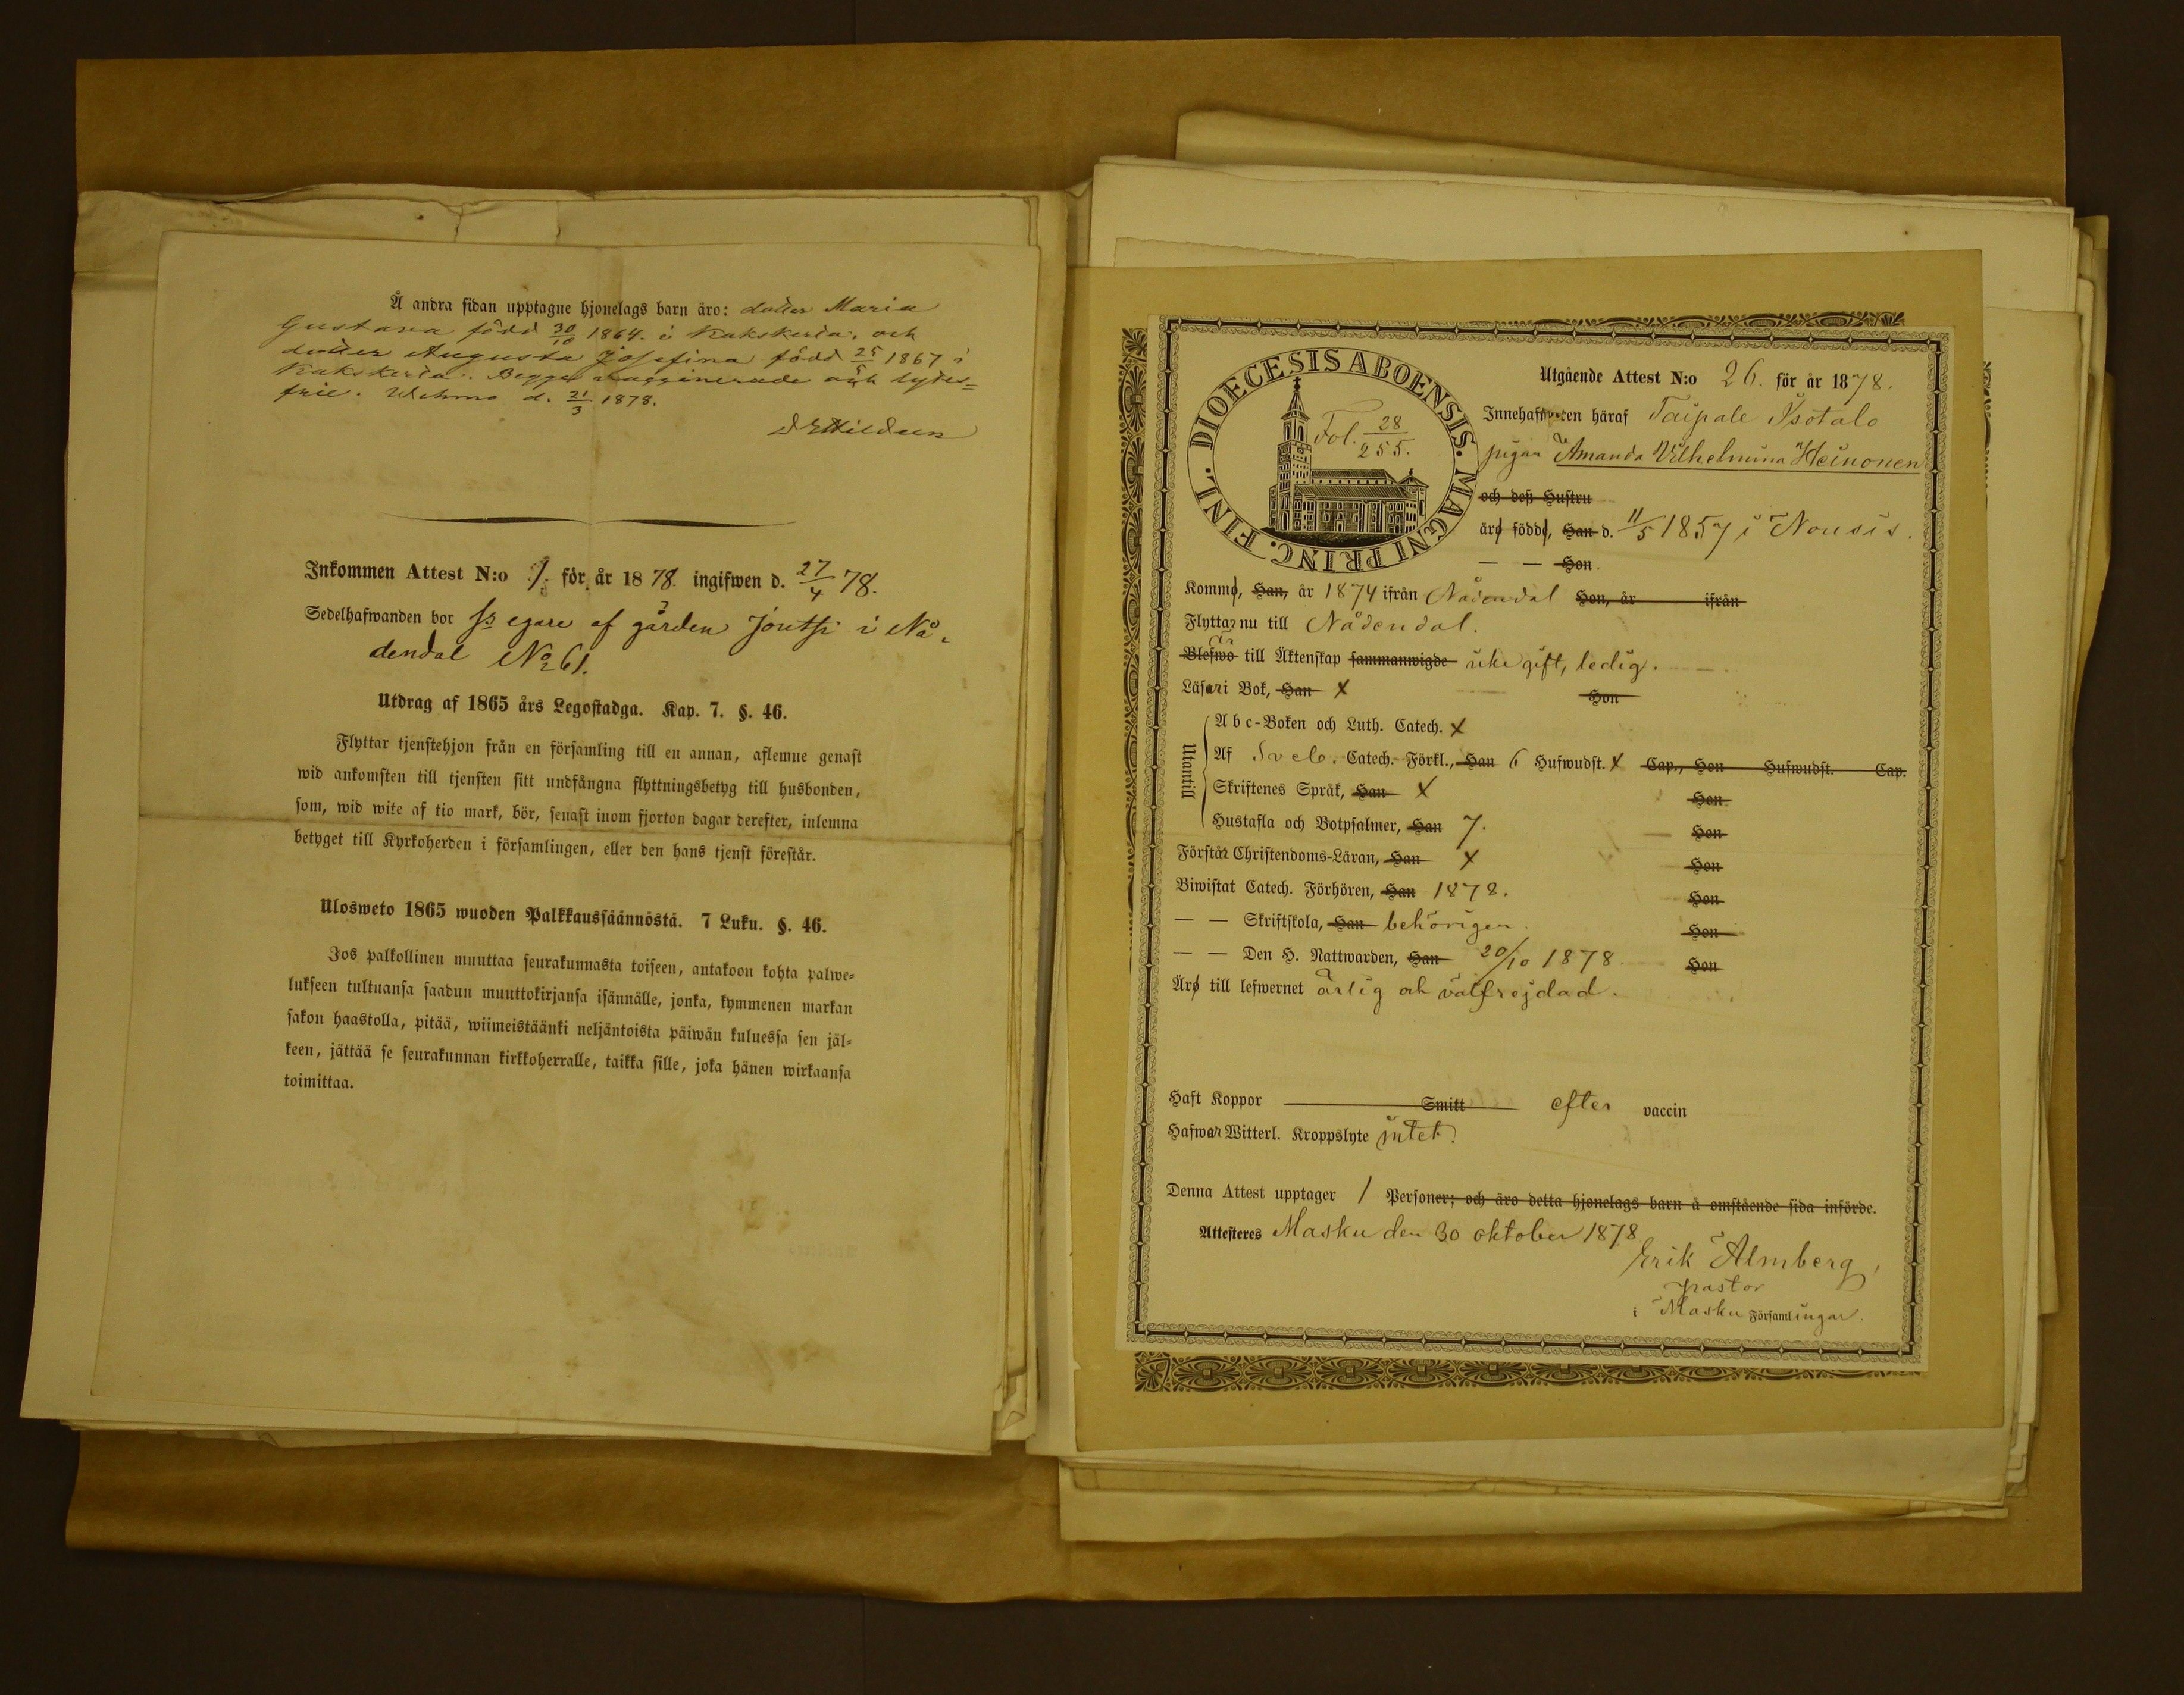 Å andra sidan upptagne hjonelags barn äro: dotter Maria
Gustava född 30/10 1864. i Kakskerta, och
dotter Augusta Josefina född 25/5 1867 i
Kakskerta. Begge vagginerade och lydes=
frie. Wehmo d. 21/3 1878.
Inkommen Attest N:o 1. för år 1878. ingifwen d. 27/4 78.
Sedelhafwanden bor egare af gården i Nå-
dendal No 61.
Utdrag af 1865 års Legostadga. Kap. 7. §. 46.
Flyttar tjenstehjon från en församling till en annan, aflemne genast
wid ankomsten till tjensten sitt undfångna flyttningsbetyg till husbonden,
som, wid wite af tio mark, bör, senast inom fjorton dagar derefter, inlemna
betyget till Kyrkoherden i församlingen, eller den hans tjenst förestår.
Ulosweto 1865 wuoden Palkkaussäännöstä. 7 Luku. §. 46.
Jos palkollinen muuttaa seurakunnasta toiseen, antakoon kohta palwe=
lukseen tultuansa saadun muuttokirjansa isännälle, jonka, kymmenen markan
sakon haastolla, pitää, wiimeistäänki neljäntoista päiwän kuluessa sen jäl=
keen, jättää se seurakunnan kirkkoherralle, taikka sille, joka hänen wirkaansa
toimittaa.
DIOECESIS ABOENSIS. MAGNI PRINC. FINL.
Fol. 28/255.
Utgående Attest N:o 26. för år 1878.
Innehafwaren häraf Taipale Isotalo
pigan Amanda Vilhelmina Heinonen
och deß Hustru
äro född, Han d. 11/5 1857 i Nousis.
— — Hon.
Kommo, Han, år 1874 ifrån Nådendal Hon, år ifrån
Flyttar nu till Nådendal.
Är
Blefwo till Äktenskap sammanwigde icke gift, ledig.
Läser i Bok, Han X Hon
Utantill
Abc-Boken och Luth. Catech. X
Af Sveb. Catech. Förkl., Han 6 Hufwudst. X Cap., Hon Hufwudst. Cap.
Skriftenes Språk, Han X Hon
Hustafla och Botpsalmer, Han 7. Hon
Förstår Christendoms-Läran, Han X Hon
Biwistat Catech. Förhören, Han 1878. Hon
— — Skriftskola, Han behörigen. Hon
— — Den H. Nattwarden, Han 20/10 1878 Hon
Äro till lefwernet ärlig och välfrejdad.
Haft Koppor Smitt efter vaccin
Hafwer Witterl. Kroppslyte intet.
Denna Attest upptager 1 Personer; och äro detta hjonelags barn å omstående sida införde.
Attesteres Masku den 30 oktober 1878
Erik Almberg,
pastor
i Masku Församlingar.